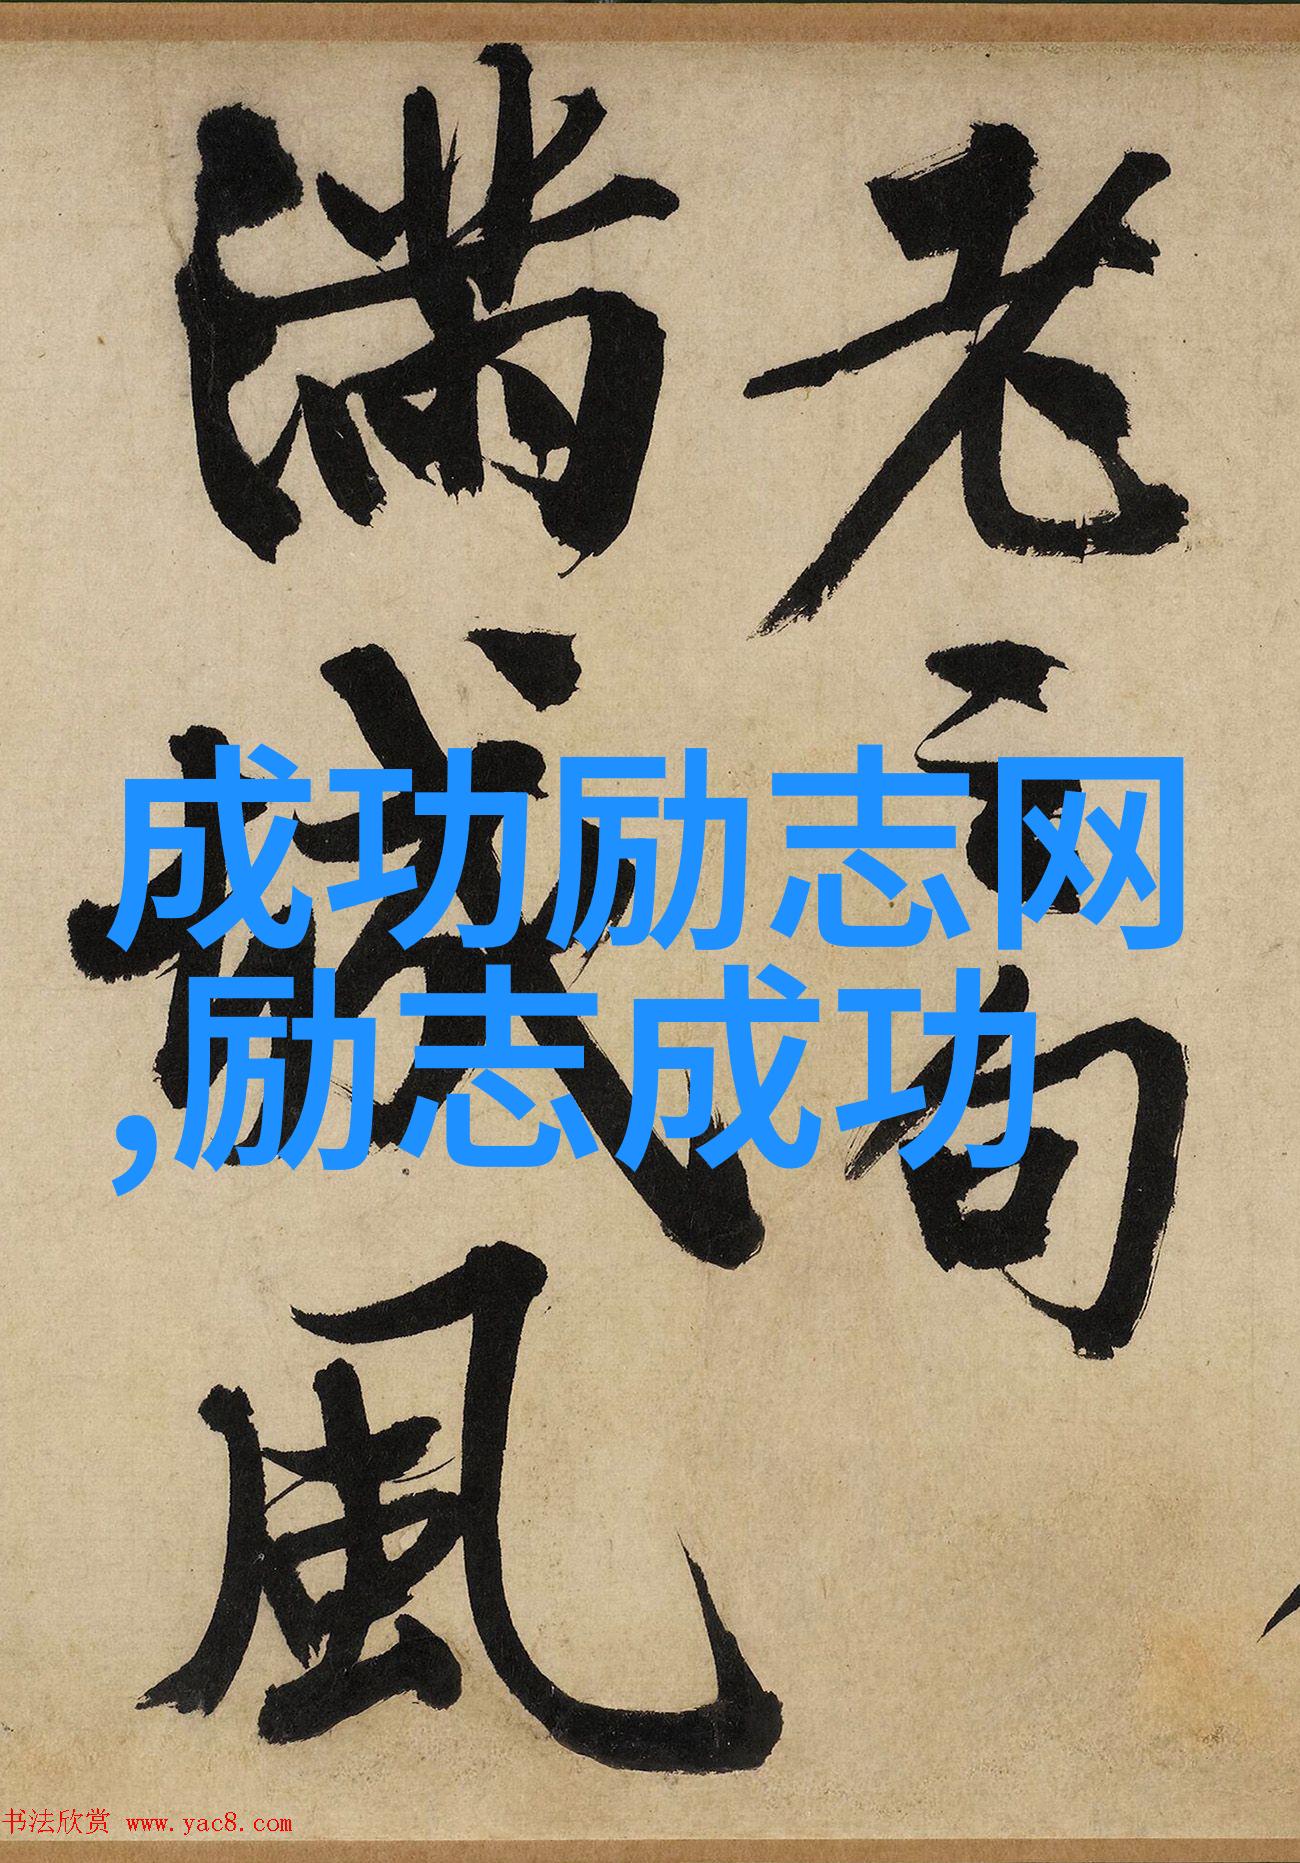 老之句
滿城風
成功励志网
,励志成功
书法欣赏 www.yac8.com